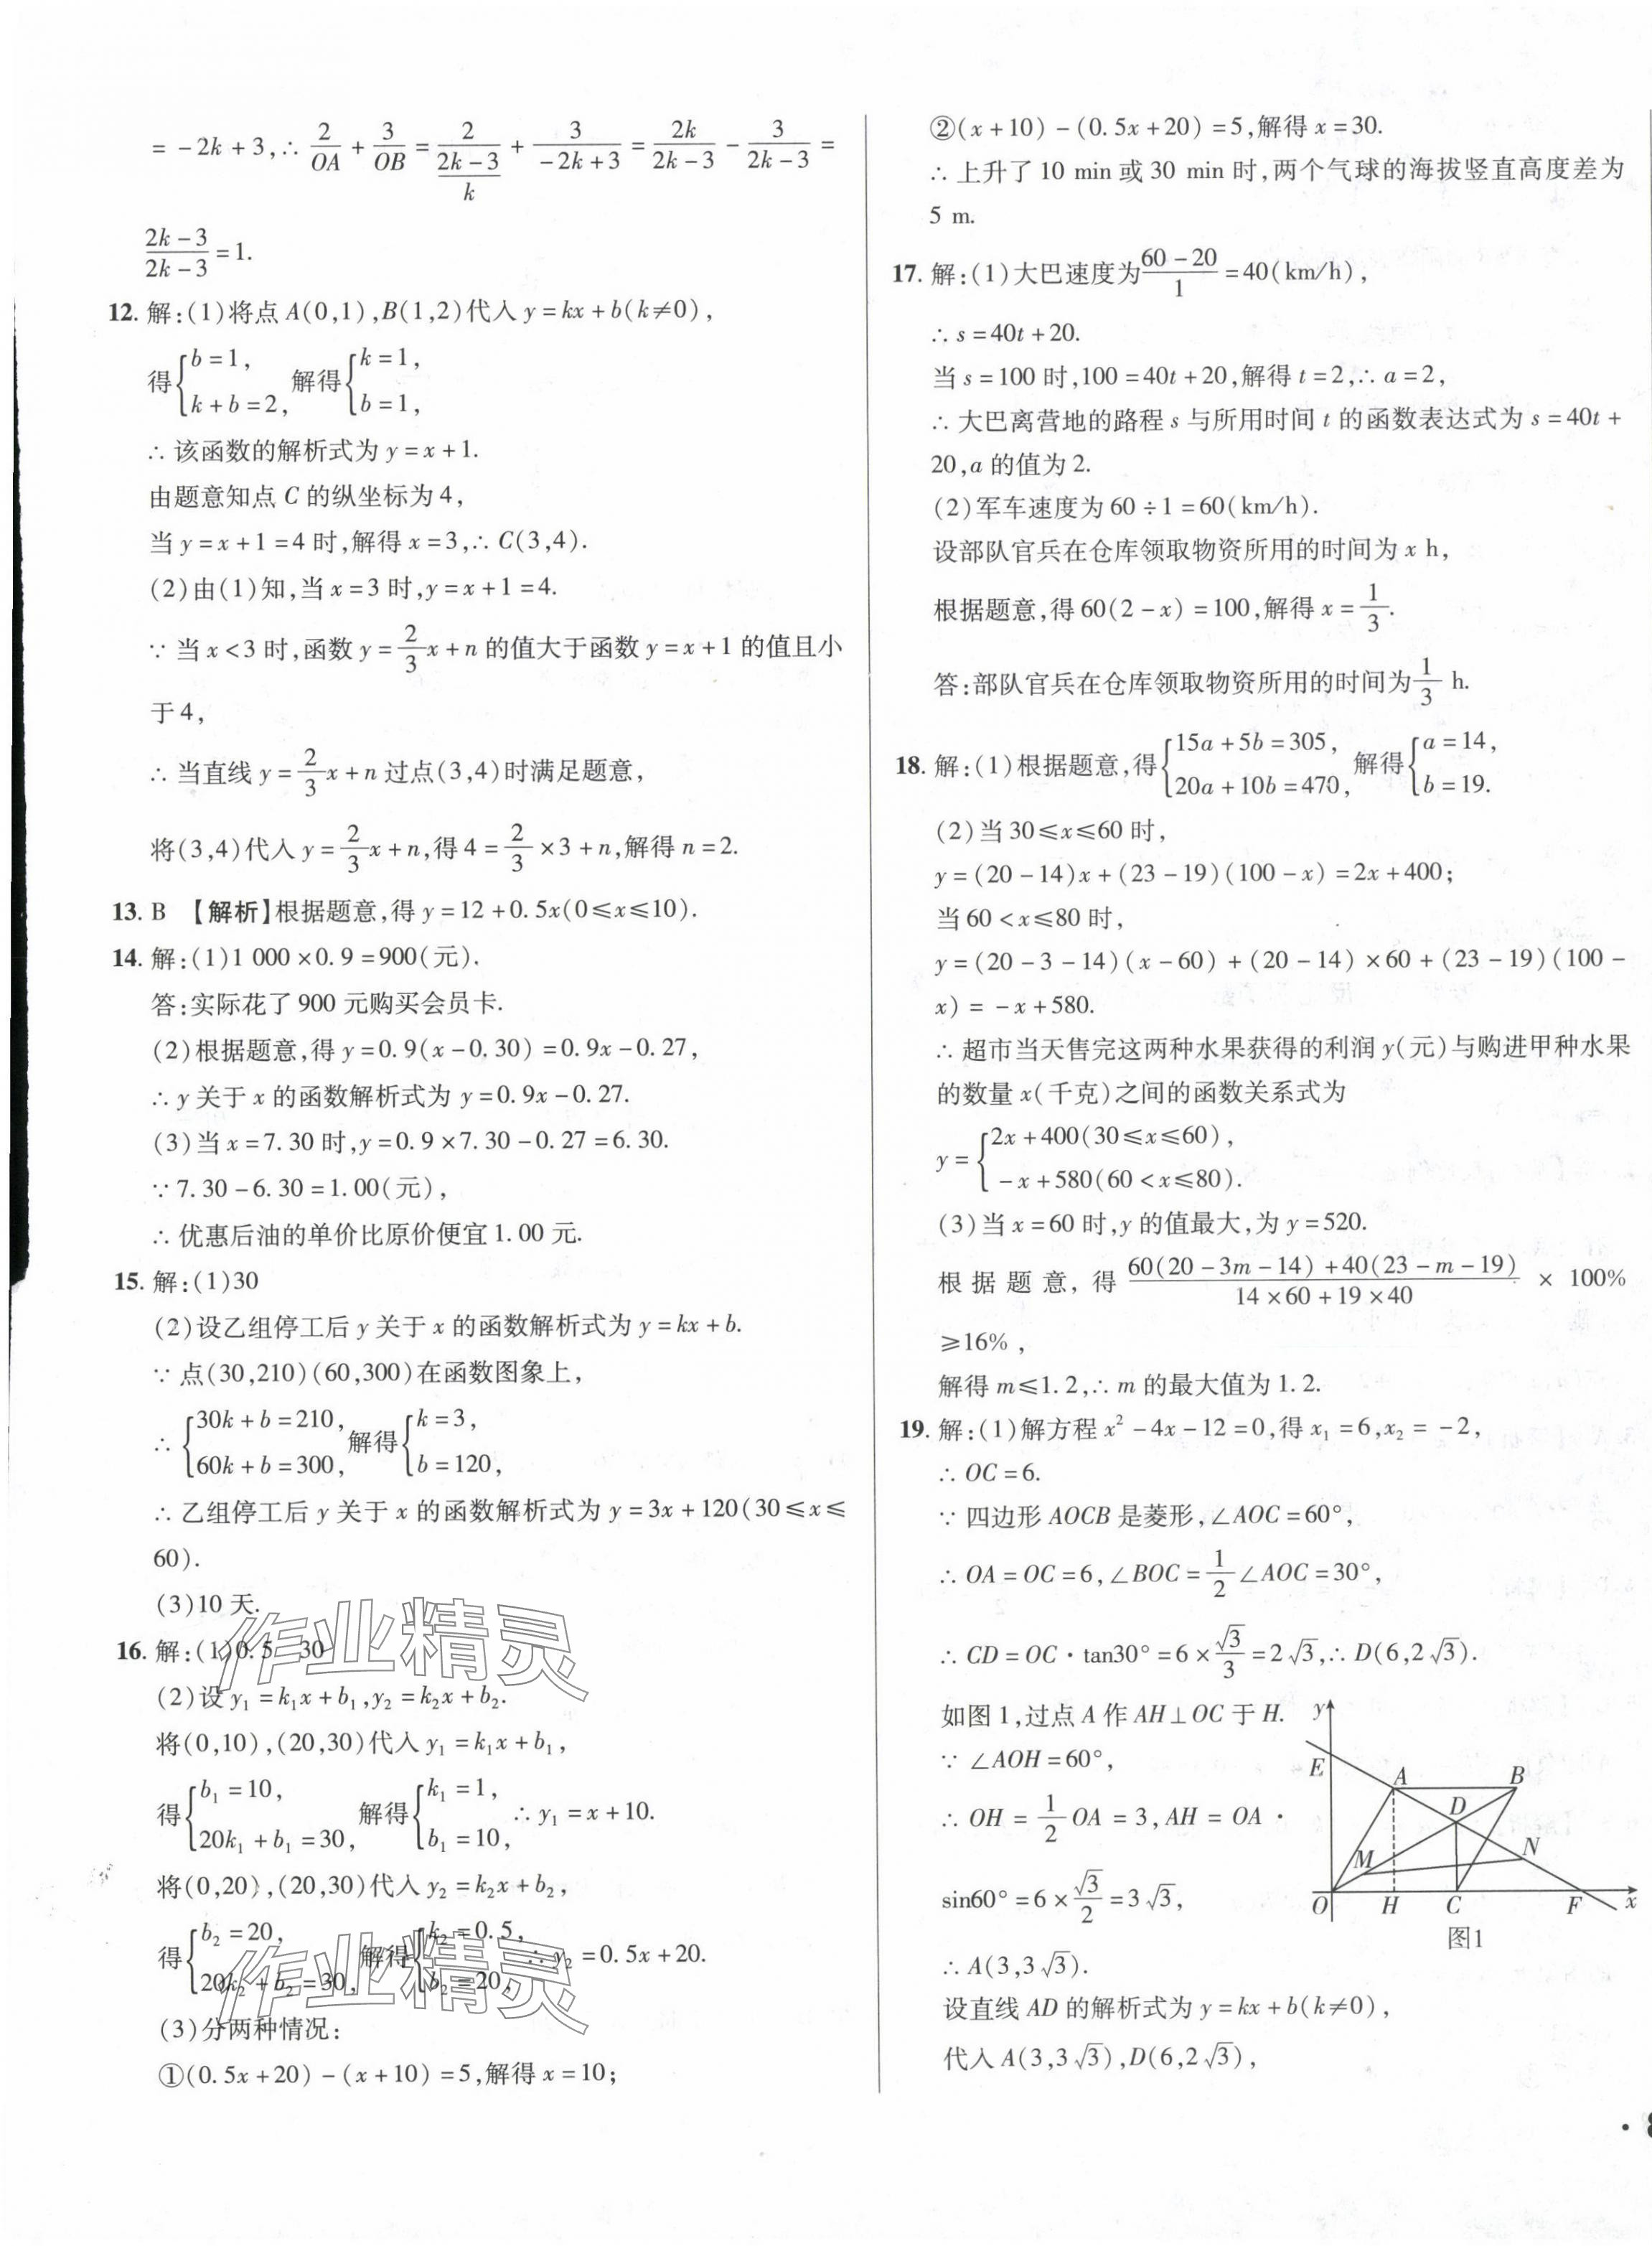 = −2k + 3,∴ 2/OA + 3/OB = 2/((2k − 3)/k) + 3/(−2k + 3) = 2k/(2k − 3) − 3/(2k − 3) =
(2k − 3)/(2k − 3) = 1.
12. 解:(1)将点 A(0,1),B(1,2)代入 y = kx + b(k≠0),
得{b = 1, k + b = 2, 解得{k = 1, b = 1,
∴ 该函数的解析式为 y = x + 1.
由题意知点 C 的纵坐标为 4,
当 y = x + 1 = 4 时,解得 x = 3,∴ C(3,4).
(2)由(1)知,当 x = 3 时,y = x + 1 = 4.
∵ 当 x < 3 时,函数 y = 2/3 x + n 的值大于函数 y = x + 1 的值且小
于 4,
∴ 当直线 y = 2/3 x + n 过点(3,4)时满足题意,
将(3,4)代入 y = 2/3 x + n,得 4 = 2/3 × 3 + n,解得 n = 2.
13. B 【解析】根据题意,得 y = 12 + 0.5x(0≤x≤10).
14. 解:(1)1 000 × 0.9 = 900(元).
答:实际花了 900 元购买会员卡.
(2)根据题意,得 y = 0.9(x − 0.30) = 0.9x − 0.27,
∴ y 关于 x 的函数解析式为 y = 0.9x − 0.27.
(3)当 x = 7.30 时,y = 0.9 × 7.30 − 0.27 = 6.30.
∵ 7.30 − 6.30 = 1.00(元),
∴ 优惠后油的单价比原价便宜 1.00 元.
15. 解:(1)30
(2)设乙组停工后 y 关于 x 的函数解析式为 y = kx + b.
∵ 点(30,210)(60,300)在函数图象上,
∴ {30k + b = 210, 60k + b = 300, 解得{k = 3, b = 120,
∴ 乙组停工后 y 关于 x 的函数解析式为 y = 3x + 120(30≤x≤
60).
(3)10 天.
16. 解:(1)0.5 30
(2)设 y₁ = k₁x + b₁,y₂ = k₂x + b₂.
将(0,10),(20,30)代入 y₁ = k₁x + b₁,
得{b₁ = 10, 20k₁ + b₁ = 30, 解得{k₁ = 1, b₁ = 10, ∴ y₁ = x + 10.
将(0,20),(20,30)代入 y₂ = k₂x + b₂,
得{b₂ = 20, 20k₂ + b₂ = 30, 解得{k₂ = 0.5, b₂ = 20, ∴ y₂ = 0.5x + 20.
(3)分两种情况:
①(0.5x + 20) − (x + 10) = 5,解得 x = 10;
作业精灵
作业精灵
②(x + 10) − (0.5x + 20) = 5,解得 x = 30.
∴ 上升了 10 min 或 30 min 时,两个气球的海拔竖直高度差为
5 m.
17. 解:(1)大巴速度为 (60 − 20)/1 = 40(km/h),
∴ s = 40t + 20.
当 s = 100 时,100 = 40t + 20,解得 t = 2,∴ a = 2,
∴ 大巴离营地的路程 s 与所用时间 t 的函数表达式为 s = 40t +
20,a 的值为 2.
(2)军车速度为 60 ÷ 1 = 60(km/h).
设部队官兵在仓库领取物资所用的时间为 x h,
根据题意,得 60(2 − x) = 100,解得 x = 1/3.
答:部队官兵在仓库领取物资所用的时间为 1/3 h.
18. 解:(1)根据题意,得{15a + 5b = 305, 20a + 10b = 470, 解得{a = 14, b = 19.
(2)当 30≤x≤60 时,
y = (20 − 14)x + (23 − 19)(100 − x) = 2x + 400;
当 60 < x≤80 时,
y = (20 − 3 − 14)(x − 60) + (20 − 14) × 60 + (23 − 19)(100 −
x) = −x + 580.
∴ 超市当天售完这两种水果获得的利润 y(元)与购进甲种水果
的数量 x(千克)之间的函数关系式为
y = {2x + 400(30≤x≤60), −x + 580(60 < x≤80).
(3)当 x = 60 时,y 的值最大,为 y = 520.
根据题意,得 (60(20 − 3m − 14) + 40(23 − m − 19))/(14 × 60 + 19 × 40) × 100%
≥16%,
解得 m≤1.2,∴ m 的最大值为 1.2.
19. 解:(1)解方程 x² − 4x − 12 = 0,得 x₁ = 6,x₂ = −2,
∴ OC = 6.
∵ 四边形 AOCB 是菱形,∠AOC = 60°,
∴ OA = OC = 6,∠BOC = 1/2 ∠AOC = 30°,
∴ CD = OC · tan30° = 6 × √3/3 = 2√3,∴ D(6,2√3).
如图 1,过点 A 作 AH⊥OC 于 H.
∵ ∠AOH = 60°,
∴ OH = 1/2 OA = 3,AH = OA ·
sin60° = 6 × √3/2 = 3√3,
∴ A(3,3√3).
设直线 AD 的解析式为 y = kx + b(k≠0),
代入 A(3,3√3),D(6,2√3),
y
E A B
D
M N
O H C F x
图1
· 8